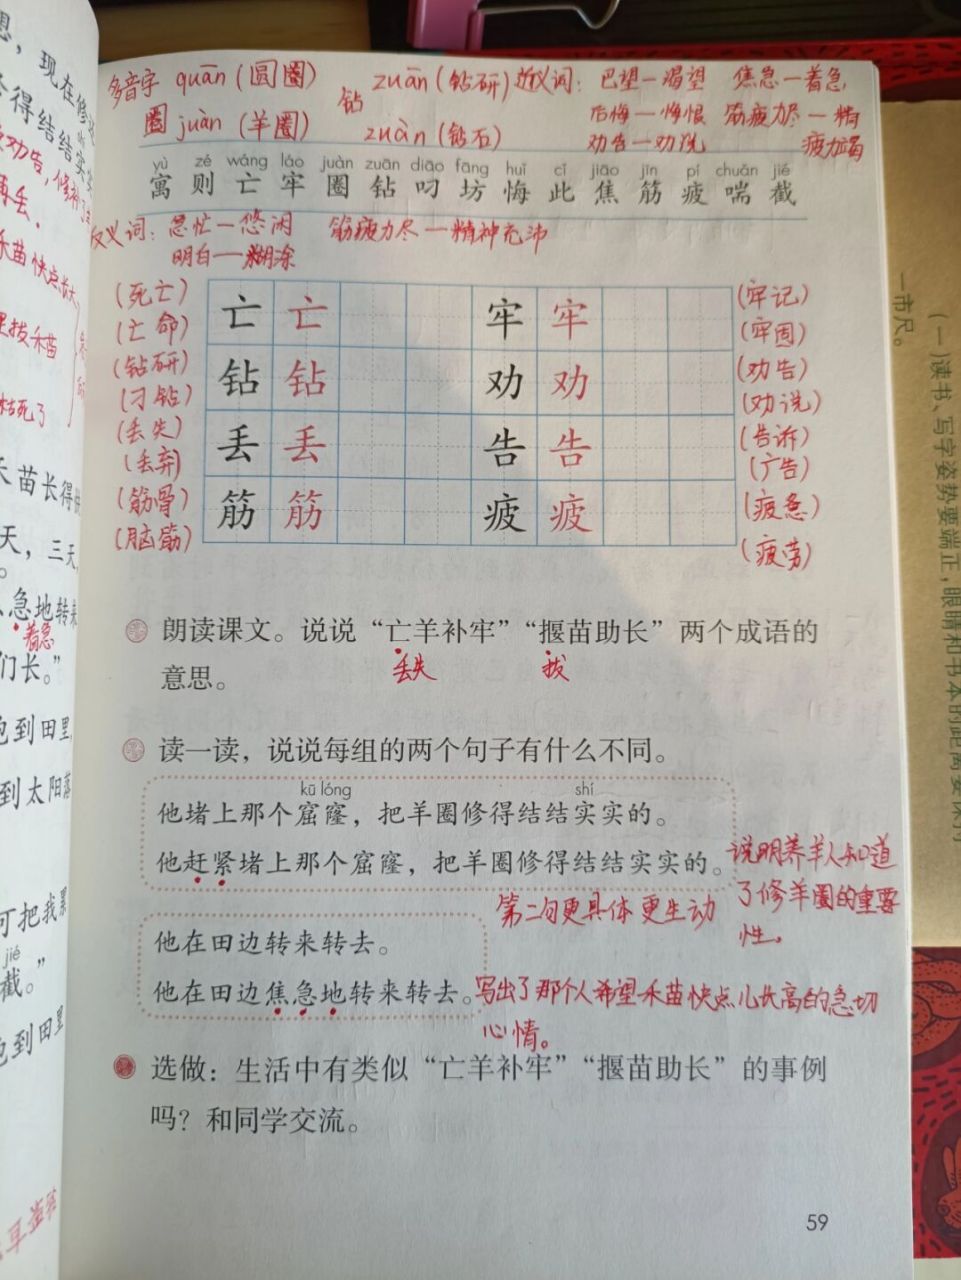 多音字 quān (圆圈)
圈 juàn (羊圈)
钻
zuān (钻研)
zuàn (钻石)
近义词: 巴望—渴望 焦急—着急
后悔—悔恨 筋疲力尽—精
疲力竭
劝告—劝说
yù zé wáng láo juàn zuān diāo fāng huǐ cǐ jiāo jīn pí chuǎn jié
寓 则 亡 牢 圈 钻 叼 坊 悔 此 焦 筋 疲 喘 截
反义词: 急忙—悠闲 筋疲力尽—精神充沛
明白—糊涂
(死亡) 亡 亡 牢 牢 (牢记)
(亡命) (牢固)
(钻研) 钻 钻 劝 劝 (劝告)
(刁钻) (劝说)
(丢失) 丢 丢 告 告 (告诉)
(丢弃) (广告)
(筋骨) 筋 筋 疲 疲 (疲惫)
(脑筋) (疲劳)
朗读课文。说说“亡羊补牢”“揠苗助长”两个成语的
丢失 拔
意思。
读一读，说说每组的两个句子有什么不同。
kū lóng shí
他堵上那个窟窿，把羊圈修得结结实实的。
他赶紧堵上那个窟窿，把羊圈修得结结实实的。
说明养羊人知道
了修羊圈的重要
性。
第二句更具体更生动
他在田边转来转去。
他在田边焦急地转来转去。
写出了那个人希望禾苗快点儿长高的急切
心情。
选做：生活中有类似“亡羊补牢”“揠苗助长”的事例
吗？和同学交流。
59
思，现在修
得结结实实
劝告，
禾苗快点长大
拔禾苗
枯死了
苗长得快
天，三天
急地转来
着急
们长。”
到田里
到太阳落
可把我累
jié
截。”
到田里
一市尺。
(一)读书、写字姿势要端正，眼睛和书本的距离要保持